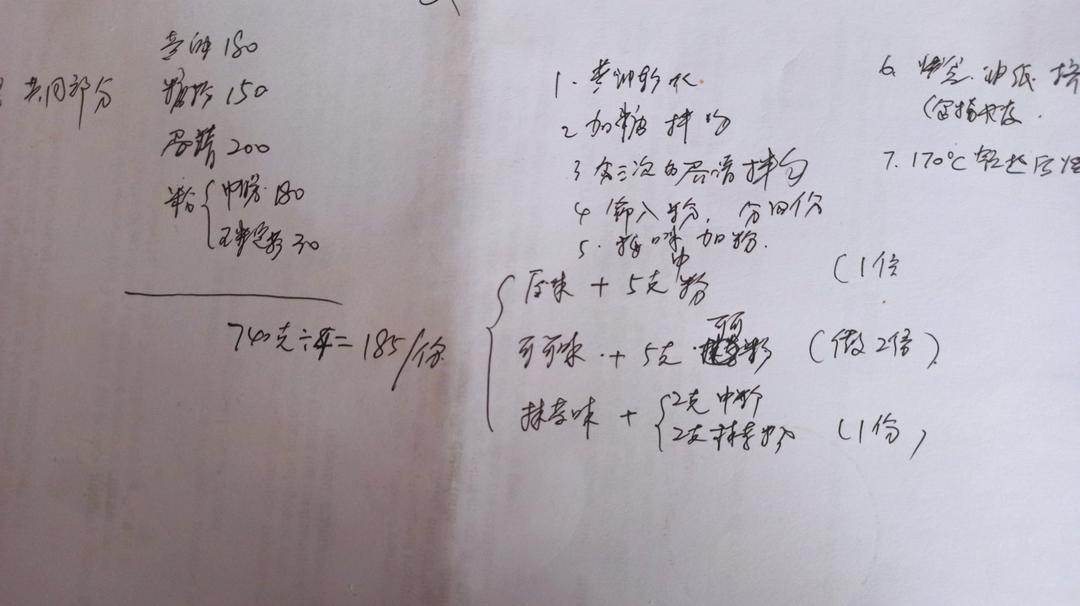 共同部分
黄油 180
糖粉 150
蛋清 200
粉 { 中粉 180
玉米淀粉 30
740克÷4=185/份
1. 黄油软化
2 加糖拌匀
3 分三次加蛋清拌匀
4 筛入粉,分四份
5. 按口味加粉.
原味 + 5克中粉 (1份
可可味 + 5克可可粉 (做2倍)
抹茶味 + { 2克中粉
2克抹茶粉 (1份)
6. 烤盘.油纸 挤
7. 170℃